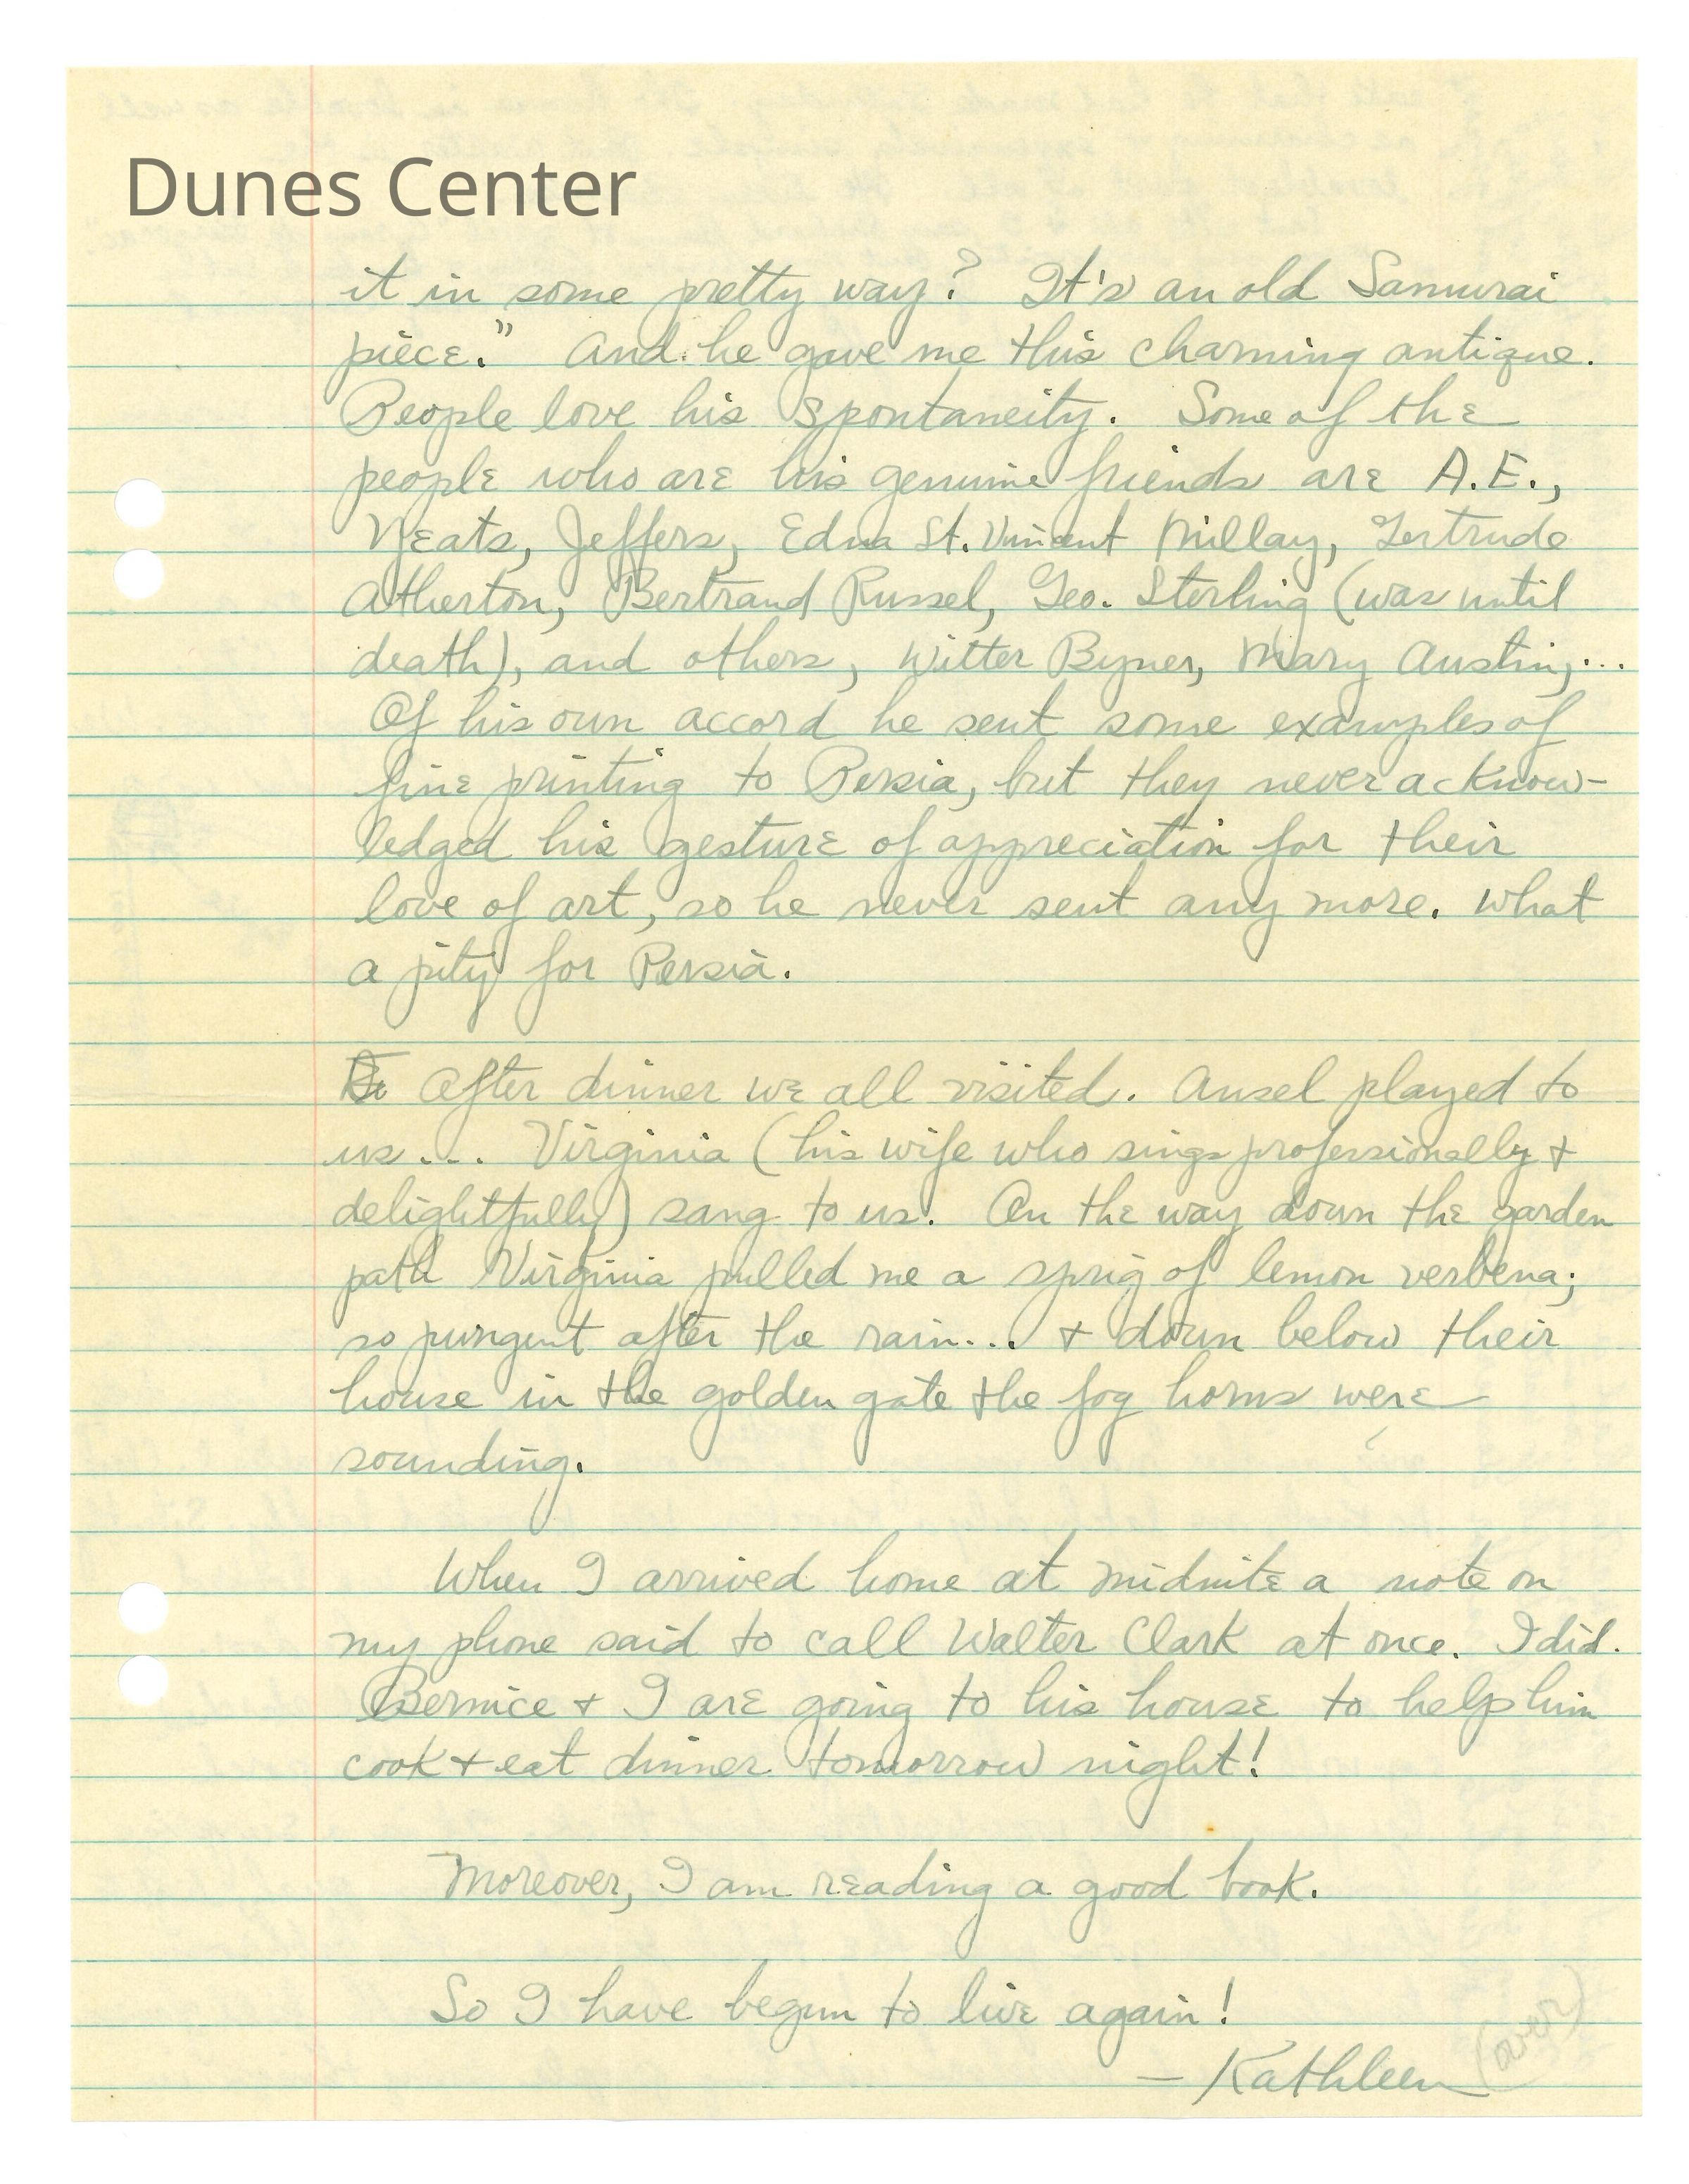 Dunes Center
it in some pretty way? It's an old Samurai
piece." And he gave me this charming antique.
People love his spontaneity. Some of the
people who are his genuine friends are A.E.,
Yeats, Jeffers, Edna St. Vincent Millay, Gertrude
Atherton, Bertrand Russel, Geo. Sterling (was until
death), and others, Witter Byner, Mary Austin,...
Of his own accord he sent some examples of
fine printing to Persia, but they never acknow-
ledged his gesture of appreciation for their
love of art, so he never sent any more. What
a pity for Persia.
After dinner we all visited. Ansel played to
us.... Virginia (his wife who sings professionally &
delightfully) sang to us. On the way down the garden
path Virginia pulled me a sprig of lemon verbena;
so pungent after the rain... & down below their
house in the golden gate the fog horns were
sounding.
When I arrived home at midnite a note on
my phone said to call Walter Clark at once. I did.
Bernice & I are going to his house to help him
cook & eat dinner tomorrow night!
Moreover, I am reading a good book.
So I have begun to live again!
— Kathleen
(over)